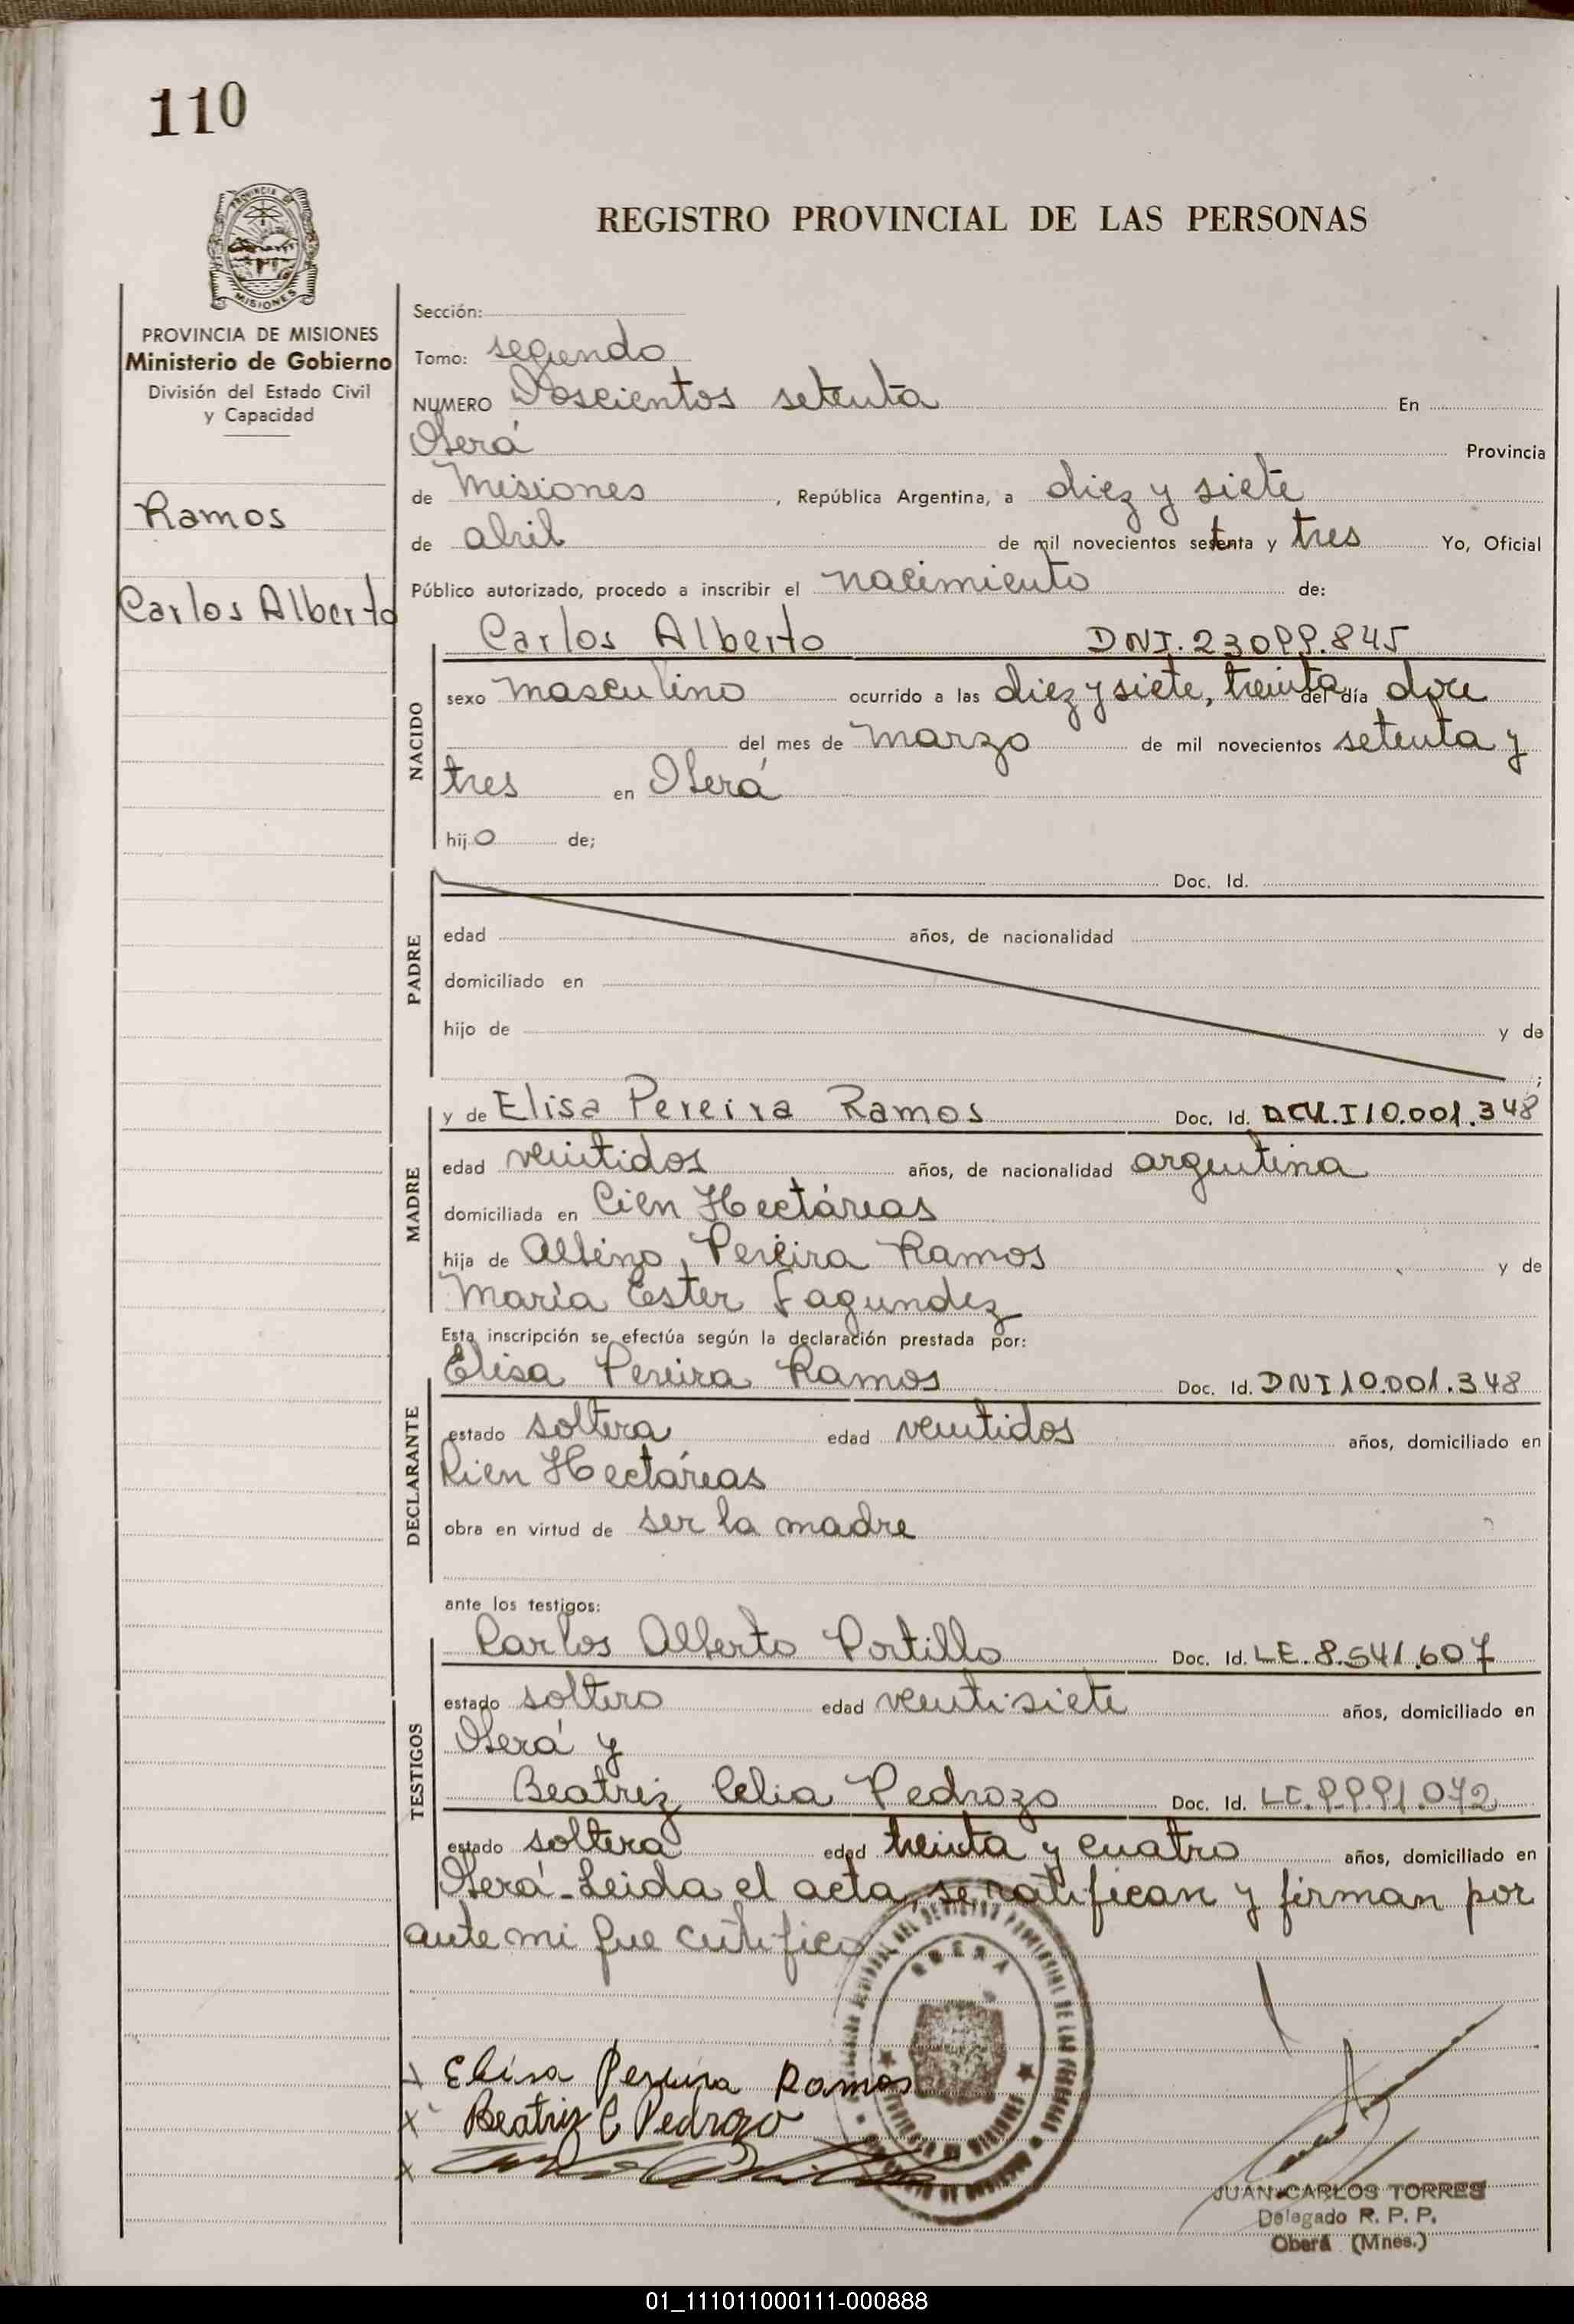 110
PROVINCIA DE
MISIONES
REGISTRO PROVINCIAL DE LAS PERSONAS
PROVINCIA DE MISIONES
Ministerio de Gobierno
División del Estado Civil
y Capacidad
Ramos
Carlos Alberto
Sección:
Tomo: segundo
NUMERO Doscientos setenta En
Oberá Provincia
de Misiones, República Argentina, a diez y siete
de abril de mil novecientos setenta y tres Yo, Oficial
Público autorizado, procedo a inscribir el nacimiento de:
Carlos Alberto DNI.23099.845
NACIDO
sexo masculino ocurrido a las diez y siete, treinta del día doce
del mes de marzo de mil novecientos setenta y
tres en Oberá
hijo de;
PADRE
Doc. Id.
edad años, de nacionalidad
domiciliado en
hijo de y de
;
MADRE
y de Elisa Pereira Ramos Doc. Id. 10.001.348
edad veintidos años, de nacionalidad argentina
domiciliada en Cien Hectáreas
hija de Albino Pereira Ramos y de
María Ester Fagundez
Esta inscripción se efectúa según la declaración prestada por:
DECLARANTE
Elisa Pereira Ramos Doc. Id. DNI 10.001.348
estado soltera edad veintidos años, domiciliado en
Cien Hectáreas
obra en virtud de ser la madre
ante los testigos:
TESTIGOS
Carlos Alberto Portillo Doc. Id. LE.8.541.607
estado soltero edad veintisiete años, domiciliado en
Oberá y
Beatriz Celia Pedrozo Doc. Id. LC.9.991.072
estado soltera edad treinta y cuatro años, domiciliado en
Oberá-Leida el acta, se ratifican y firman por
ante mi que certifico
OBERA
x Elisa Pereira Ramos
x Beatriz C Pedrozo
x
JUAN CARLOS TORRES
Delegado R. P. P.
Oberá (Mnes.)
01_111011000111-000888